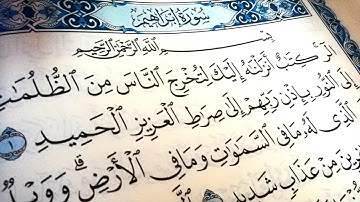 سُورَةُ إِبْرَاهِيمَ
بِسْمِ ٱللَّهِ ٱلرَّحْمَٰنِ ٱلرَّحِيمِ
الٓر ۚ كِتَٰبٌ أَنزَلْنَٰهُ إِلَيْكَ لِتُخْرِجَ ٱلنَّاسَ مِنَ ٱلظُّلُمَٰتِ
إِلَى ٱلنُّورِ بِإِذْنِ رَبِّهِمْ إِلَىٰ صِرَٰطِ ٱلْعَزِيزِ ٱلْحَمِيدِ ١
ٱلَّذِى لَهُۥ مَا فِى ٱلسَّمَٰوَٰتِ وَمَا فِى ٱلْأَرْضِ ۗ وَوَيْلٌ
مِنْ عَذَابٍ شَدِيدٍ